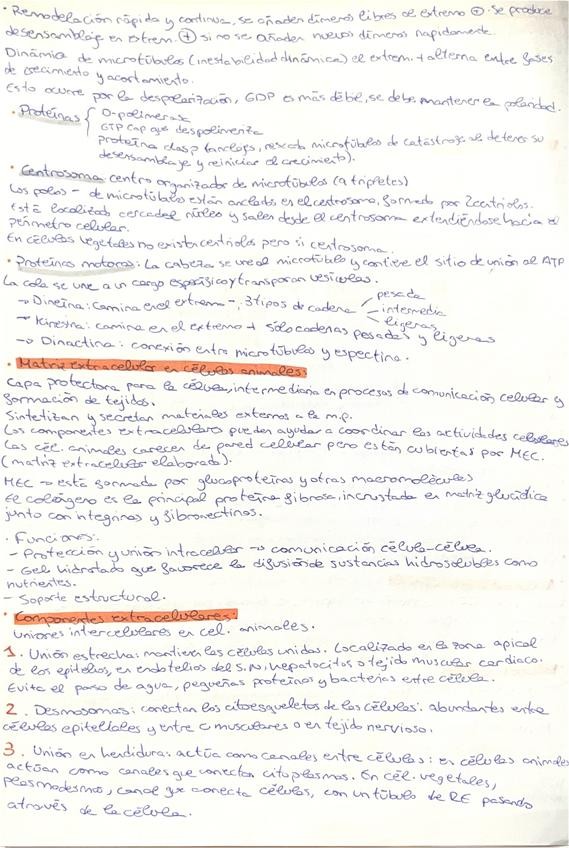 · Remodelación rápida y continua, se añaden dímeros libres al extremo ⊕. Se produce
desensamblaje en extrem. ⊕ si no se añaden nuevos dímeros rapidamente.
Dinámica de microtúbulos (inestabilidad dinámica) el extrem. + alterna entre fases
de crecimiento y acortamiento.
Esto ocurre por la despolarización, GDP es más débil, se debe mantener la polaridad.
· Proteínas { O-polimerasa
GTP cap que despolimeriza
proteína clasp (anclajs, rescata microtúbulos de catástrofe al detener su
desensamblaje y reiniciar el crecimiento).
· Centrosoma: centro organizador de microtúbulos (9 tripletes)
Los polos - de microtúbulos están anclados en el centrosoma, formado por 2 centriolos.
Está localizado cerca del núcleo y sales desde el centrosoma extendiéndose hacia el
perímetro celular.
En células vegetales no existe centriolo pero si centrosoma.
· Proteínas motoras: La cabeza se une al microtúbulo y contiene el sitio de unión al ATP
La cola se une a un cargo específico y transportan vesículas.
→ Dineína: Camina en el extremo -, 3 tipos de cadena pesada
intermedia
ligeras
→ Kinesina: camina en el extremo + sólo cadenas pesadas y ligeras
→ Dinactina: conexión entre microtúbulos y espectina.
· Matriz extracelular en células animales:
Capa protectora para la célula, intermediaria en procesos de comunicación celular y
formación de tejidos.
Sintetizan y secretan materiales externos a la m.p.
Los componentes extracelulares pueden ayudar a coordinar las actividades celulares
Las cél. animales carecen de pared cellular pero están cubiertas por MEC.
(matriz extracelular elaborada).
MEC → está formada por glucoproteínas y otras macromoléculas
El colágeno es la principal proteína fibrosa, incrustada en matriz glucídica
junto con integrinas y fibronectinas.
· Funciones:
- Protección y unión intracelular → comunicación célula-célula.
- Gel hidratado que favorece la difusión de sustancias hidrosolubles como
nutrientes.
- Soporte estructural.
· Componentes extracelulares:
Uniones intercelulares en cel. animales.
1. Unión estrecha: mantienen las células unidas. Localizado en la zona apical
de los epitelios, en endotelios del S.N, hepatocitos o tejido muscular cardíaco.
Evita el paso de agua, pequeñas proteínas y bacterias entre célula.
2. Desmosomas: conectan los citoesqueletos de las células: abundantes entre
células epiteliales y entre c musculares o en tejido nervioso.
3. Unión en hendidura: actúa como canales entre células: en células animales
actúan como canales que conectan citoplasmas. En cél. vegetales,
plasmodesmos, canal que conecta células, con un túbulo de RE pasando
através de la célula.